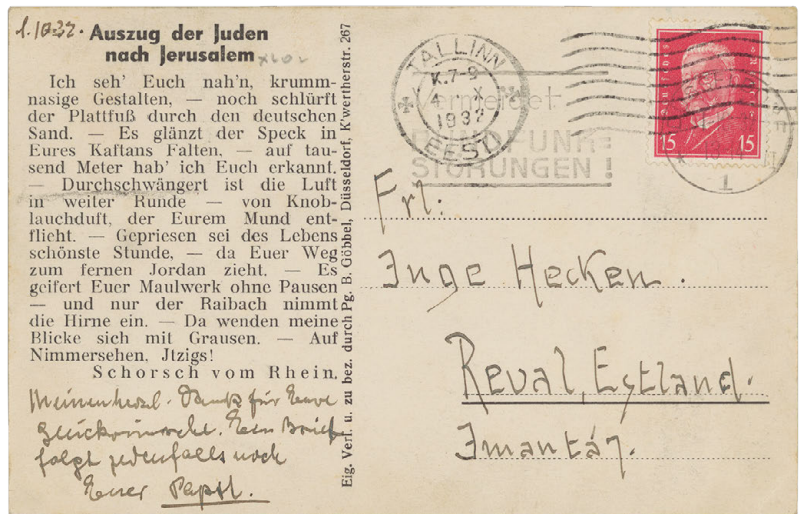 1.10.32.
Auszug der Juden
nach Jerusalem
Ich seh' Euch nah'n, krumm-
nasige Gestalten, — noch schlürft
der Plattfuß durch den deutschen
Sand. — Es glänzt der Speck in
Eures Kaftans Falten, — auf tau-
send Meter hab' ich Euch erkannt.
— Durchschwängert ist die Luft
in weiter Runde — von Knob-
lauchduft, der Eurem Mund ent-
flieht. — Gepriesen sei des Lebens
schönste Stunde, — da Euer Weg
zum fernen Jordan zieht. — Es
geifert Euer Maulwerk ohne Pausen
— und nur der Raibach nimmt
die Hirne ein. — Da wenden meine
Blicke sich mit Grausen. — Auf
Nimmersehen, Jtzigs!
Schorsch vom Rhein.
Dank für Eure
Ein Brief
folgt jedenfalls noch
Euer
Eig. Verl. u. zu bez. durch Pg. B. Göbbel, Düsseldorf, K'wertherstr. 267
TALLINN
K. 7-9
4. X
1932
EESTI
STÖRUNGEN!
15 15
1
Frl.
Inge Hecken.
Reval, Estland.